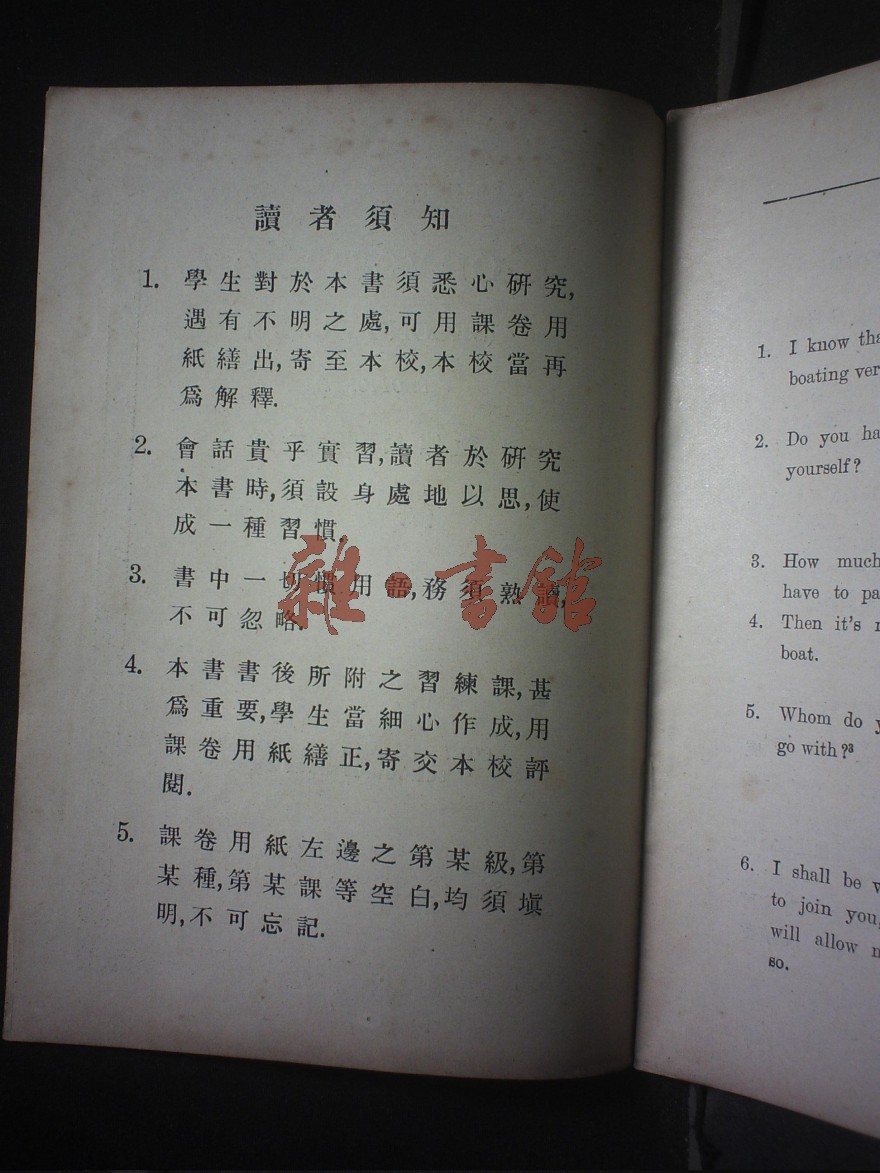 讀者須知
1. 學生對於本書須悉心研究,
遇有不明之處,可用課卷用
紙繕出,寄至本校,本校當再
爲解釋.
2. 會話貴乎實習,讀者於研究
本書時,須設身處地以思,使
成一種習慣.
3. 書中一切慣用語,務須熟讀,
不可忽略.
4. 本書書後所附之習練課,甚
爲重要,學生當細心作成,用
課卷用紙繕正,寄交本校評
閱.
5. 課卷用紙左邊之第某級,第
某種,第某課等空白,均須塡
明,不可忘記.
雜·書館
1. I know
boating
2. Do you
yourself?
3. How much
have to
4. Then it's
boat.
5. Whom do
go with?³
6. I shall be
to join you,
will allow
so.